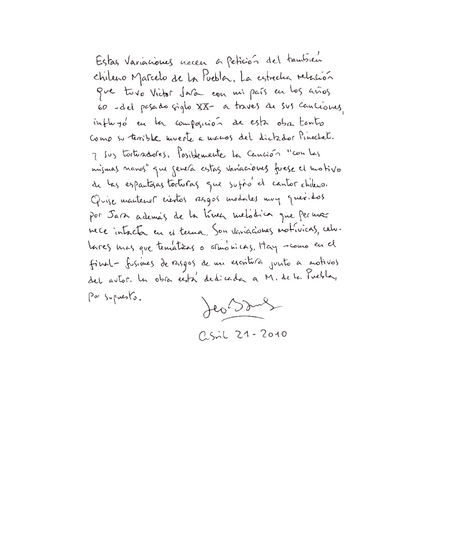 Estas Variaciones nacen a petición del también
chileno Marcelo de la Puebla. La estrecha relación
que tuvo Victor Jara con mi país en los años
60 -del pasado siglo XX- a traves de sus canciones,
influyó en la composición de esta obra tanto
como su terrible muerte a manos del dictador Pinochet
y sus torturadores. Posiblemente la canción "con las
mismas manos" que genera estas variaciones fuese el motivo
de las espantosas torturas que sufrió el cantor chileno.
Quise mantener ciertos rasgos modales muy queridos
por Jara además de la línea melódica que perma
nece intacta en el tema. Son variaciones motívicas, celu-
lares mas que temáticas o armónicas. Hay -como en el
final- fusiones de rasgos de mi escritura junto a motivos
del autor. La obra está dedicada a M. de la Puebla,
por supuesto.
Abril 21-2010